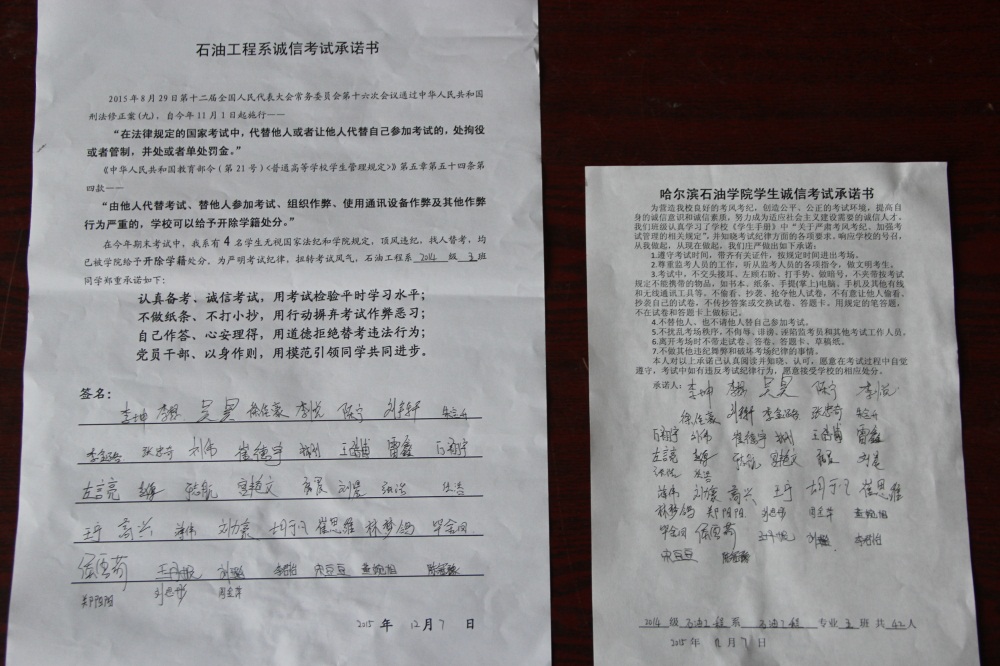 石油工程系诚信考试承诺书
2015年8月29日第十二届全国人民代表大会常务委员会第十六次会议通过中华人民共和国
刑法修正案(九)，自今年11月1日起施行——
“在法律规定的国家考试中，代替他人或者让他人代替自己参加考试的，处拘役
或者管制，并处或者单处罚金。”
《中华人民共和国教育部令（第21号）<普通高等学校学生管理规定>》第五章第五十四条第
四款——
“由他人代替考试、替他人参加考试、组织作弊、使用通讯设备作弊及其他作弊
行为严重的，学校可以给予开除学籍处分。”
在今年期末考试中，我系有4名学生无视国家法纪和学院规定，顶风违纪，找人替考，均
已被学院给予开除学籍处分。为严明考试纪律，扭转考试风气，石油工程系 2014 级 五班
同学郑重承诺如下：
认真备考、诚信考试，用考试检验平时学习水平；
不做纸条、不打小抄，用行动摒弃考试作弊恶习；
自己作答、心安理得，用道德拒绝替考违法行为；
党员干部、以身作则，用模范引领同学共同进步。
签名：
李坤 李易 吴昊 徐佳豪 李悦 陈宁
张忠奇 刘伟 崔德宇 雷鑫
左言亮 刘昊
高兴 刘力豪 崔思维 林梦鸽
宋豆豆
郑阳阳
2015 年 12 月 7 日
哈尔滨石油学院学生诚信考试承诺书
为营造我校良好的考风考纪，创造公平、公正的考试环境，提高自
身的诚信意识和诚信素质，努力成为适应社会主义建设需要的诚信人才，
我们班级认真学习了学校《学生手册》中“关于严肃考风考纪，加强考
试管理的相关规定”，并知晓考试纪律方面的各项要求。响应学校的号召，
从我做起，从现在做起，我们庄严做出如下承诺：
1.遵守考试时间，带齐有关证件，按规定时间进出考场。
2.尊重监考人员的工作，听从监考人员的各项指令，做文明考生。
3.考试中，不交头接耳、左顾右盼、打手势、做暗号，不夹带按考试
规定不能携带的物品，如书本、纸条、手提(掌上)电脑，手机及其他有线
和无线通讯工具等。不偷看、抄袭、抢夺他人试卷，不有意让他人偷看、
抄袭自己的试卷，不传抄答案或交换试卷、答题卡。用规定的笔答题，
不在试卷和答题卡上做标记。
4.不替他人、也不请他人替自己参加考试。
5.不扰乱考场秩序，不侮辱、诽谤、诬陷监考员和其他考试工作人员。
6.离开考场时不带走试卷、答卷、答题卡、草稿纸。
7.不做其他违纪舞弊和破坏考场纪律的事情。
本人对以上承诺已认真阅读并知晓、认可，愿意在考试过程中自觉
遵守，考试中如有违反考试纪律行为，愿意接受学校的相应处分。
承诺人：李坤 李易 吴昊 陈宁 李悦
徐佳豪 张忠奇
刘伟 崔德宇 雷鑫
左言亮 刘昊
刘力豪 高兴 崔思维
林梦鸽 郑阳阳
宋豆豆
2014 级 石油工程 系 石油工程 专业 五 班 共 42 人
2015 年 12 月 7 日